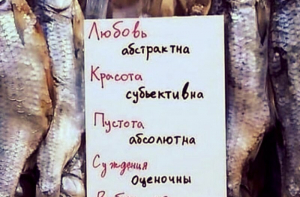 Любовь
абстрактна
Красота
субъективна
Пустота
абсолютна
Суждения
оценочны